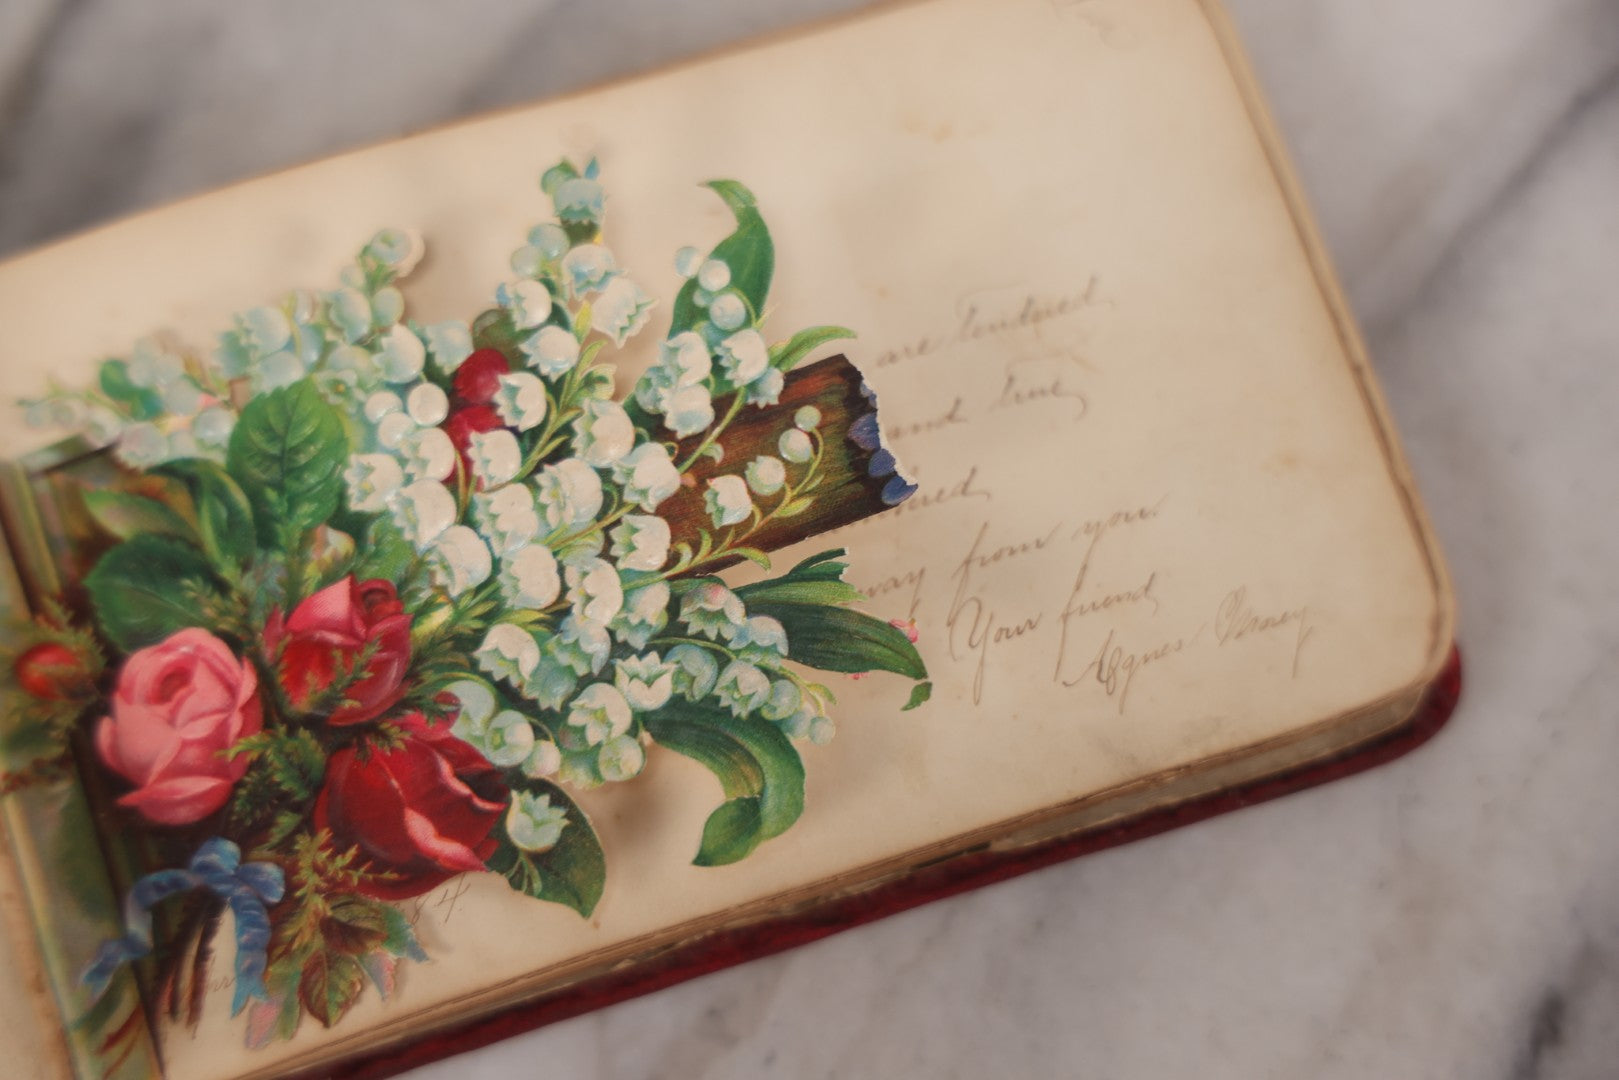 are tendered
and true
ered
way from you.
Your friend
Agnes Morey
84.